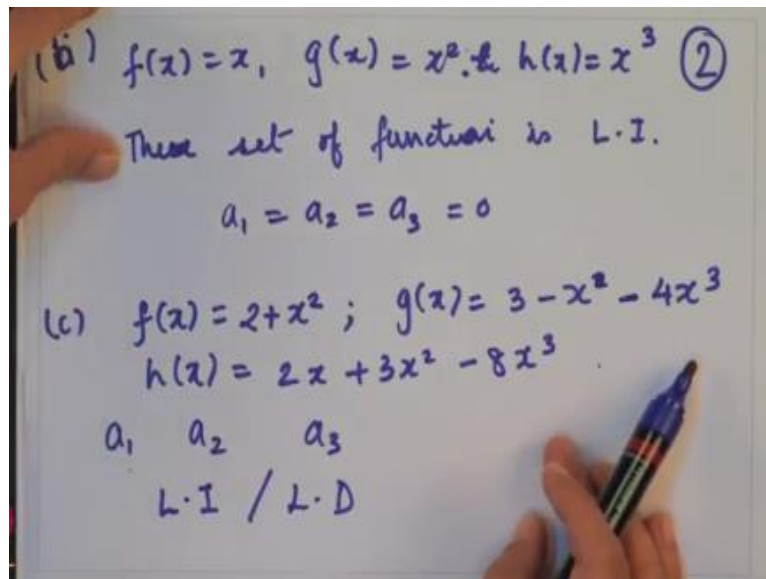 (b) f(x) = x, g(x) = x². & h(x) = x³ ②
These set of function is L.I.
a₁ = a₂ = a₃ = 0
(c) f(x) = 2+x² ; g(x) = 3 - x² - 4x³
h(x) = 2x + 3x² - 8x³
a₁ a₂ a₃
L.I / L.D